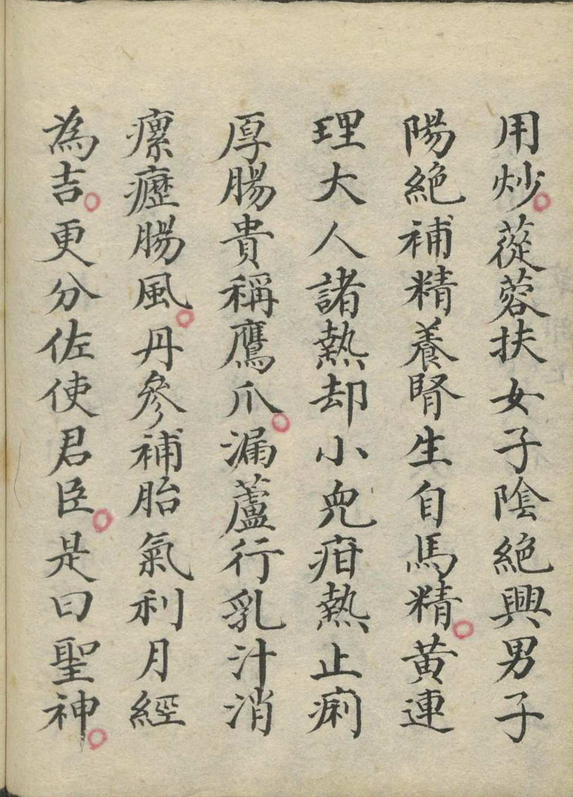 用炒。蓯蓉扶女子陰絕興男子
陽絕補精養腎生自馬精。黃連
理大人諸熱却小兒疳熱止痢
厚腸貴稱鷹爪。漏蘆行乳汁消
瘰癧腸風。丹參補胎氣利月經
為吉。更分佐使君臣。是曰聖神。